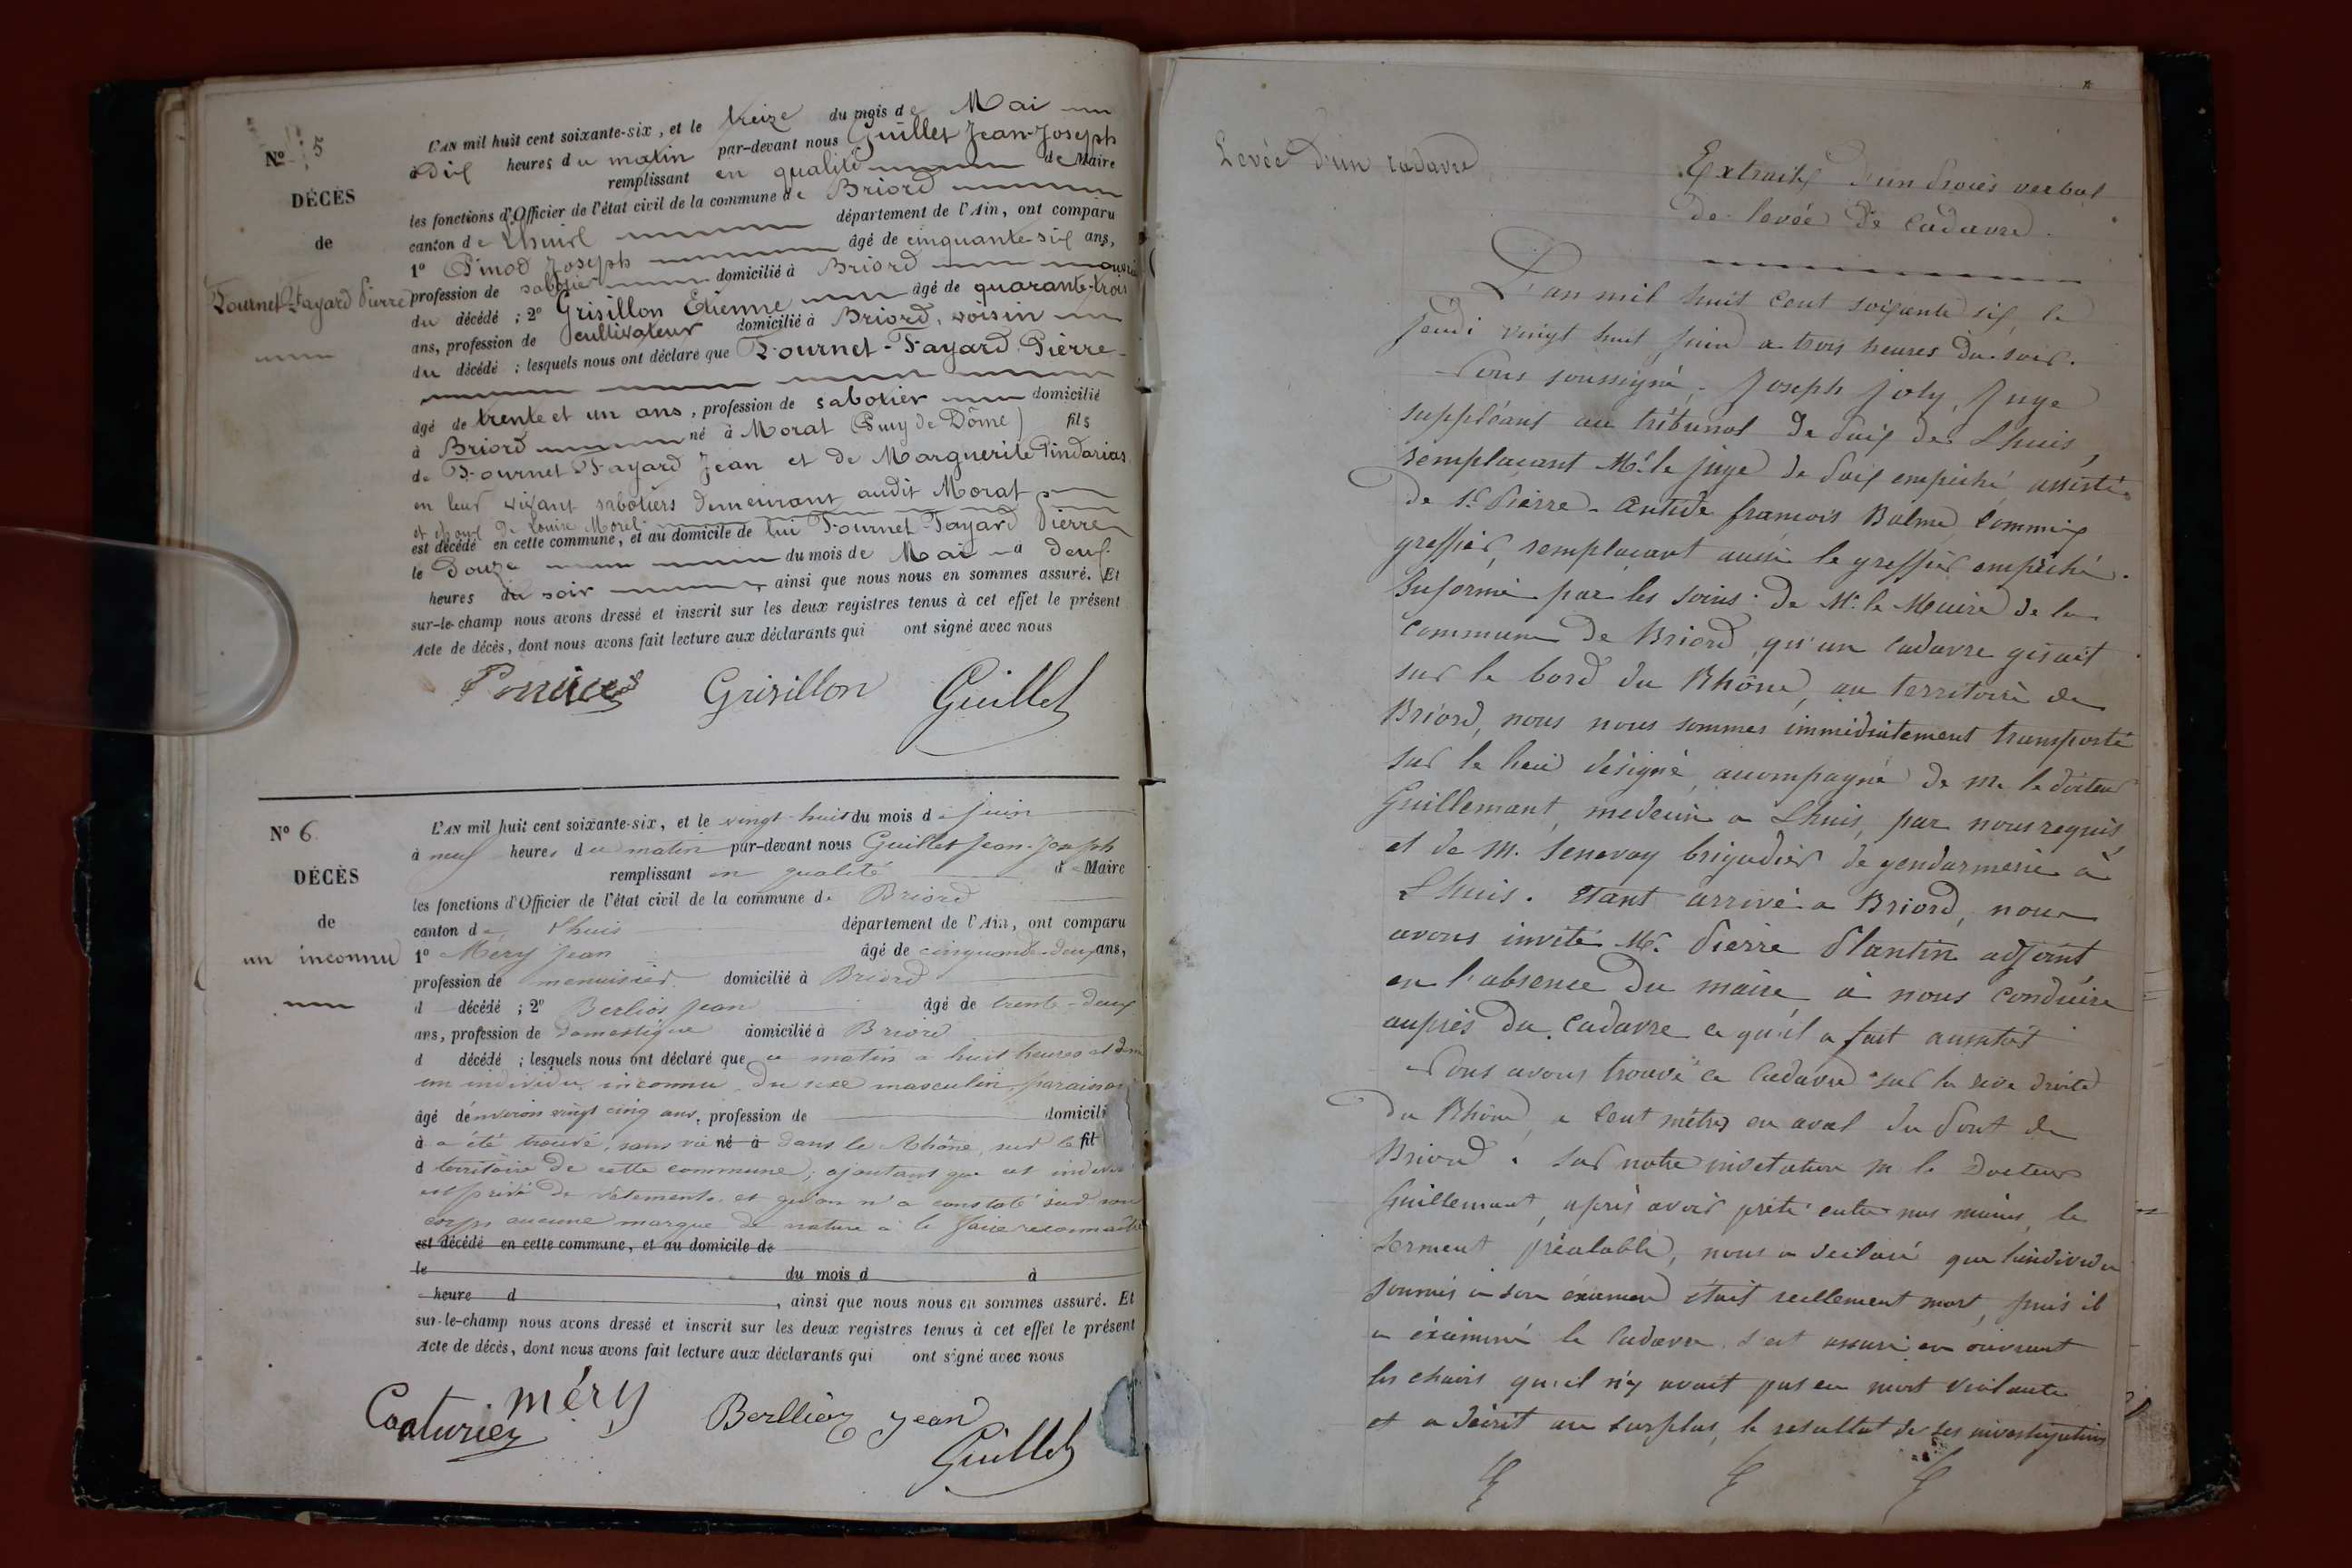 Nº 5
DÉCÈS
de
Fournet-Fayard Pierre
L'AN mil huit cent soixante-six, et le treize du mois de Mai
à dix heures du matin par-devant nous Guillet Jean-Joseph
remplissant en qualité de Maire
les fonctions d'Officier de l'état civil de la commune de Briord
canton de Lhuis département de l'Ain, ont comparu
1º Joseph âgé de cinquante-six ans,
profession de sabotier domicilié à Briord
du décédé ; 2º Grisillon Etienne âgé de quarante-trois
ans, profession de cultivateur domicilié à Briord, voisin
du décédé ; lesquels nous ont déclaré que Fournet-Fayard Pierre
âgé de trente et un ans, profession de sabotier domicilié
à Briord né à Morat (Puy de Dôme) fils
de Fournet-Fayard Jean et de Marguerite Pindarias
en leur vivant sabotiers demeurant audit Morat
et époux de Louise Morel
est décédé en cette commune, et au domicile de lui Fournet-Fayard Pierre
le Douze du mois de Mai à deux
heures du soir, ainsi que nous nous en sommes assuré. Et
sur-le-champ nous avons dressé et inscrit sur les deux registres tenus à cet effet le présent
Acte de décès, dont nous avons fait lecture aux déclarants qui ont signé avec nous
Grisillon Guillet
Nº 6
DÉCÈS
de
un inconnu
L'AN mil huit cent soixante-six, et le vingt-huit du mois de juin
à neuf heures du matin par-devant nous Guillet Jean-Joseph
remplissant en qualité de Maire
les fonctions d'Officier de l'état civil de la commune de Briord
canton de Lhuis département de l'Ain, ont comparu
1º Méry Jean âgé de cinquante-deux ans,
profession de menuisier domicilié à Briord
d décédé ; 2º Berlioz Jean âgé de trente-deux
ans, profession de domestique domicilié à Briord
d décédé ; lesquels nous ont déclaré que ce matin à huit heures et demi
un individu inconnu, du sexe masculin, paraissant
âgé d'environ vingt cinq ans, profession de domicili
à a été trouvé, sans vie né à dans le Rhône, sur le fil
d territoire de cette commune; ajoutant que cet individu
est privé de vêtements et qu'on n'a constaté sur son
corps aucune marque de nature à le faire reconnaître
est décédé en cette commune, et au domicile de
le du mois d à
heure d, ainsi que nous nous en sommes assuré. Et
sur-le-champ nous avons dressé et inscrit sur les deux registres tenus à cet effet le présent
Acte de décès, dont nous avons fait lecture aux déclarants qui ont signé avec nous
Couturier méry Berllioz Jean
Guillet
Levée d'un cadavre
Extrait d'un procès verbal
de levée de cadavre.
L'an mil huit cent soixante six, le
jeudi vingt huit juin à trois heures du soir.
Nous soussigné, Joseph Joly, Juge
suppléant au tribunal de paix de Lhuis,
remplaçant Mr le juge de paix empêché, assisté
de Sr Pierre-Antide françois Balme, commis
greffier, remplaçant aussi le greffier empêché.
Informé par les soins de Mr le Maire de la
commune de Briord, qu'un cadavre gisait
sur le bord du Rhône, au territoire de
Briord, nous nous sommes immédiatement transporté
sur le lieu désigné, accompagné de Mr le docteur
Guillemant, medecin à Lhuis, par nous requis,
et de M. Senevay brigadier de gendarmerie à
Lhuis. Etant arrivé à Briord, nous
avons invité Mr. Pierre Plantin adjoint
en l'absence du maire, à nous conduire
auprès du cadavre ce qu'il a fait aussitôt
Nous avons trouvé ce cadavre sur la rive droite
du Rhône, à cent mètres en aval du Pont de
Briord. Sur notre invitation M. le Docteur
Guillemant, après avoir prêté entre nos mains, le
serment préalable, nous a déclaré que l'individu
soumis à son éxamen était réellement mort, puis il
a éxaminé le cadavre, s'est assuré en ouvrant
les chairs qu'il n'y avait pas eu mort violente
et a décrit au surplus, le resultat de ses investigations